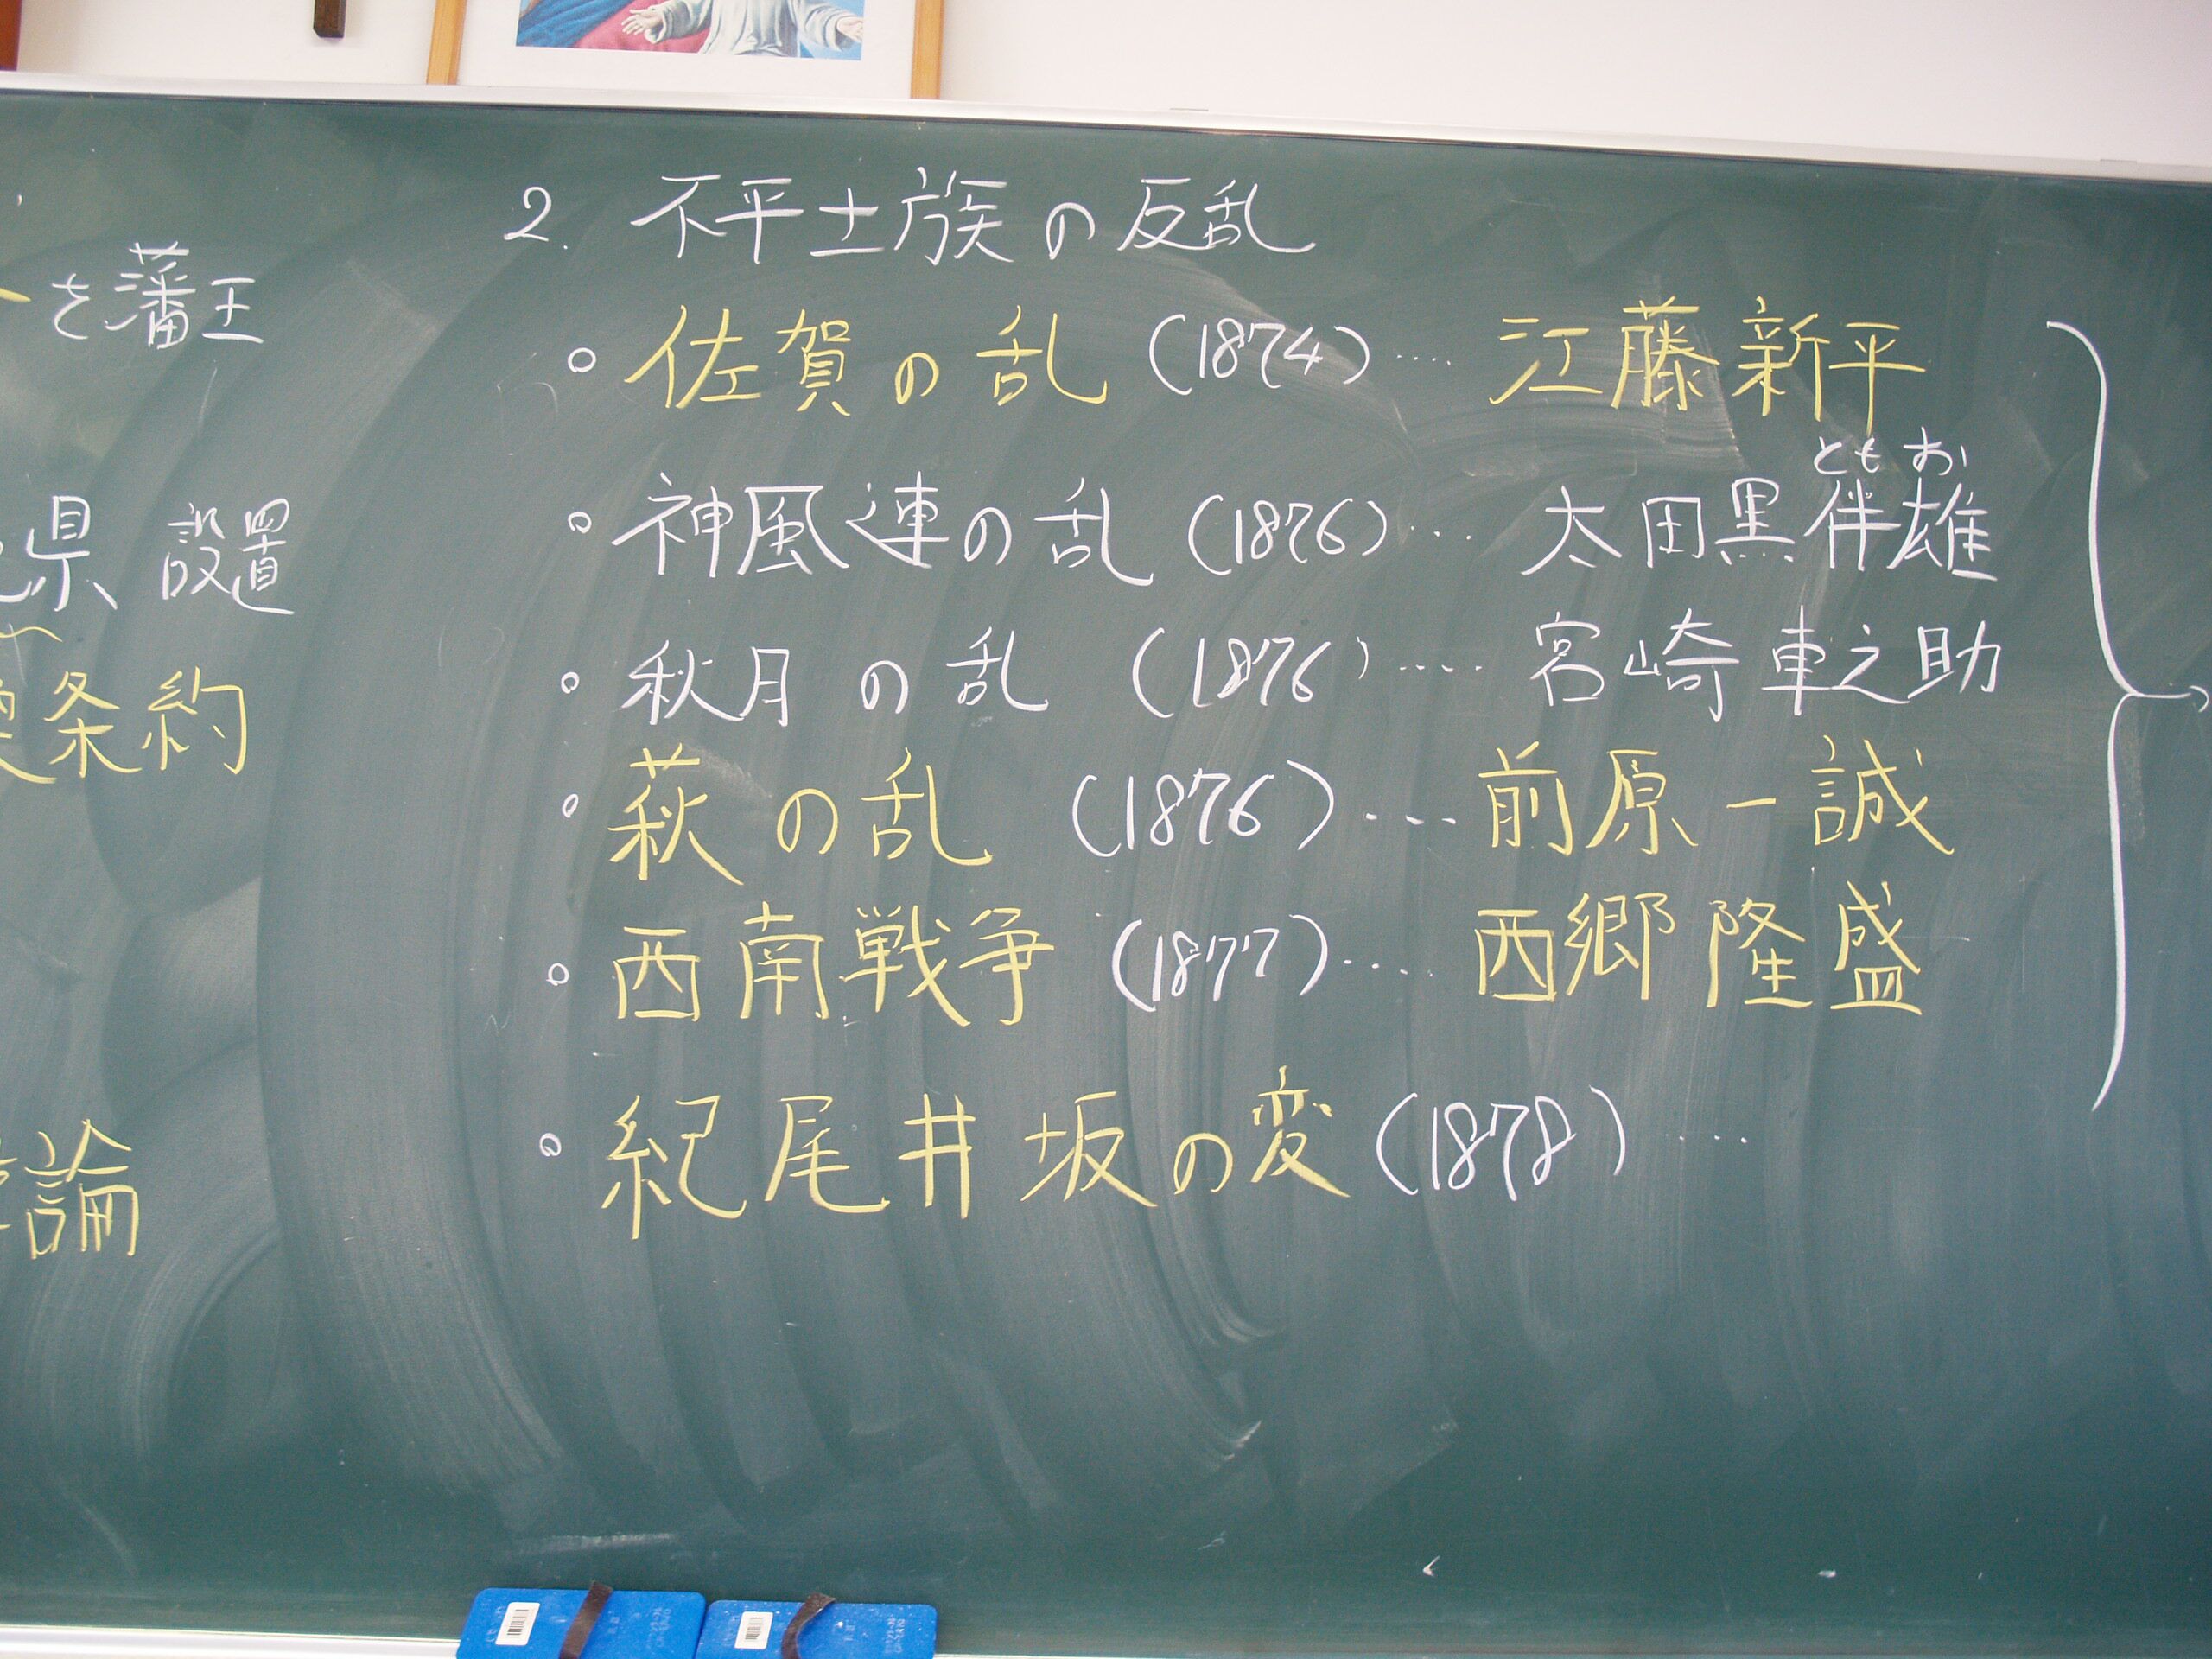 を藩王
県 設置
条約
論
2. 不平士族の反乱
○ 佐賀の乱 (1874) ‥‥ 江藤新平
ともお
○ 神風連の乱 (1876) ‥‥ 太田黒伴雄
○ 秋月の乱 (1876) ‥‥ 宮崎車之助
○ 萩の乱 (1876) ‥‥ 前原一誠
○ 西南戦争 (1877) ‥‥ 西郷隆盛
○ 紀尾井坂の変 (1878) ‥‥